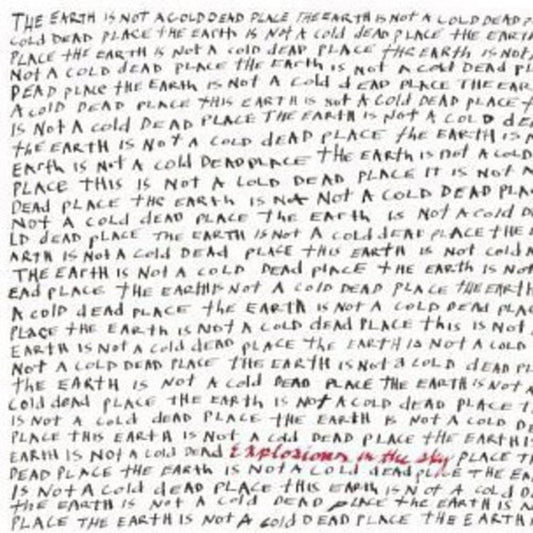 THE EARTH IS NOT A COLD DEAD PLACE THE EARTH IS NOT A COLD DEAD P
COLD DEAD PLACE THE EARTH IS NOT A COLD DEAD PLACE THE EART
PLACE THE EARTH IS NOT A COLD DEAD PLACE THE EARTH IS NOT
NOT A COLD DEAD PLACE THE EARTH IS NOT A COLD DEAD PL
DEAD PLACE THE EARTH IS NOT A COLD DEAD PLACE THE EAR
A COLD DEAD PLACE THIS EARTH IS NOT A COLD DEAD PLACE T
IS NOT A COLD DEAD PLACE THE EARTH IS NOT A COLD DE
THE EARTH IS NOT A COLD DEAD PLACE THE EARTH IS N
EARTH IS NOT A COLD DEAD PLACE THE EARTH IS NOT A COLD
PLACE THIS IS NOT A COLD DEAD PLACE IT IS NOT A
DEAD PLACE THE EARTH IS NOT NOT A COLD DEAD PLA
NOT A COLD DEAD PLACE THE EARTH IS NOT A COLD D
LD DEAD PLACE THE EARTH IS NOT A COLD DEAD PLACE THE
ARTH IS NOT A COLD DEAD PLACE THIS EARTH IS NOT COLD A
THE EARTH IS NOT A COLD DEAD PLACE THE EARTH IS NOT
EAD PLACE THE EARTH IS NOT A COLD DEAD PLACE THE EARTH
A COLD DEAD PLACE THE EARTH IS NOT A COLD DEAD PLAC
PLACE THE EARTH IS NOT A COLD DEAD PLACE THIS IS NOT
EARTH IS NOT A COLD DEAD PLACE THE EARTH IS NOT A COLD
NOT A COLD DEAD PLACE THE EARTH IS NOT A COLD DEAD PL
THE EARTH IS NOT A COLD DEAD PLACE THE EARTH IS NOT A
COLD DEAD PLACE THE EARTH IS NOT A COLD DEAD PLACE T
IS NOT A COLD DEAD PLACE THE EARTH IS NOT A COLD
PLACE THIS EARTH IS NOT A COLD DEAD PLACE THE EARTH IS
EARTH IS NOT A COLD DEAD Explosions in the sky PLACE T
DEAD PLACE THE EARTH IS NOT A COLD DEAD PLACE THE EA
IS NOT A COLD DEAD PLACE THIS EARTH IS NOT A COLD D
THE EARTH IS NOT A COLD DEAD PLACE THE EARTH IS N
PLACE THE EARTH IS NOT A COLD DEAD PLACE THE EARTH